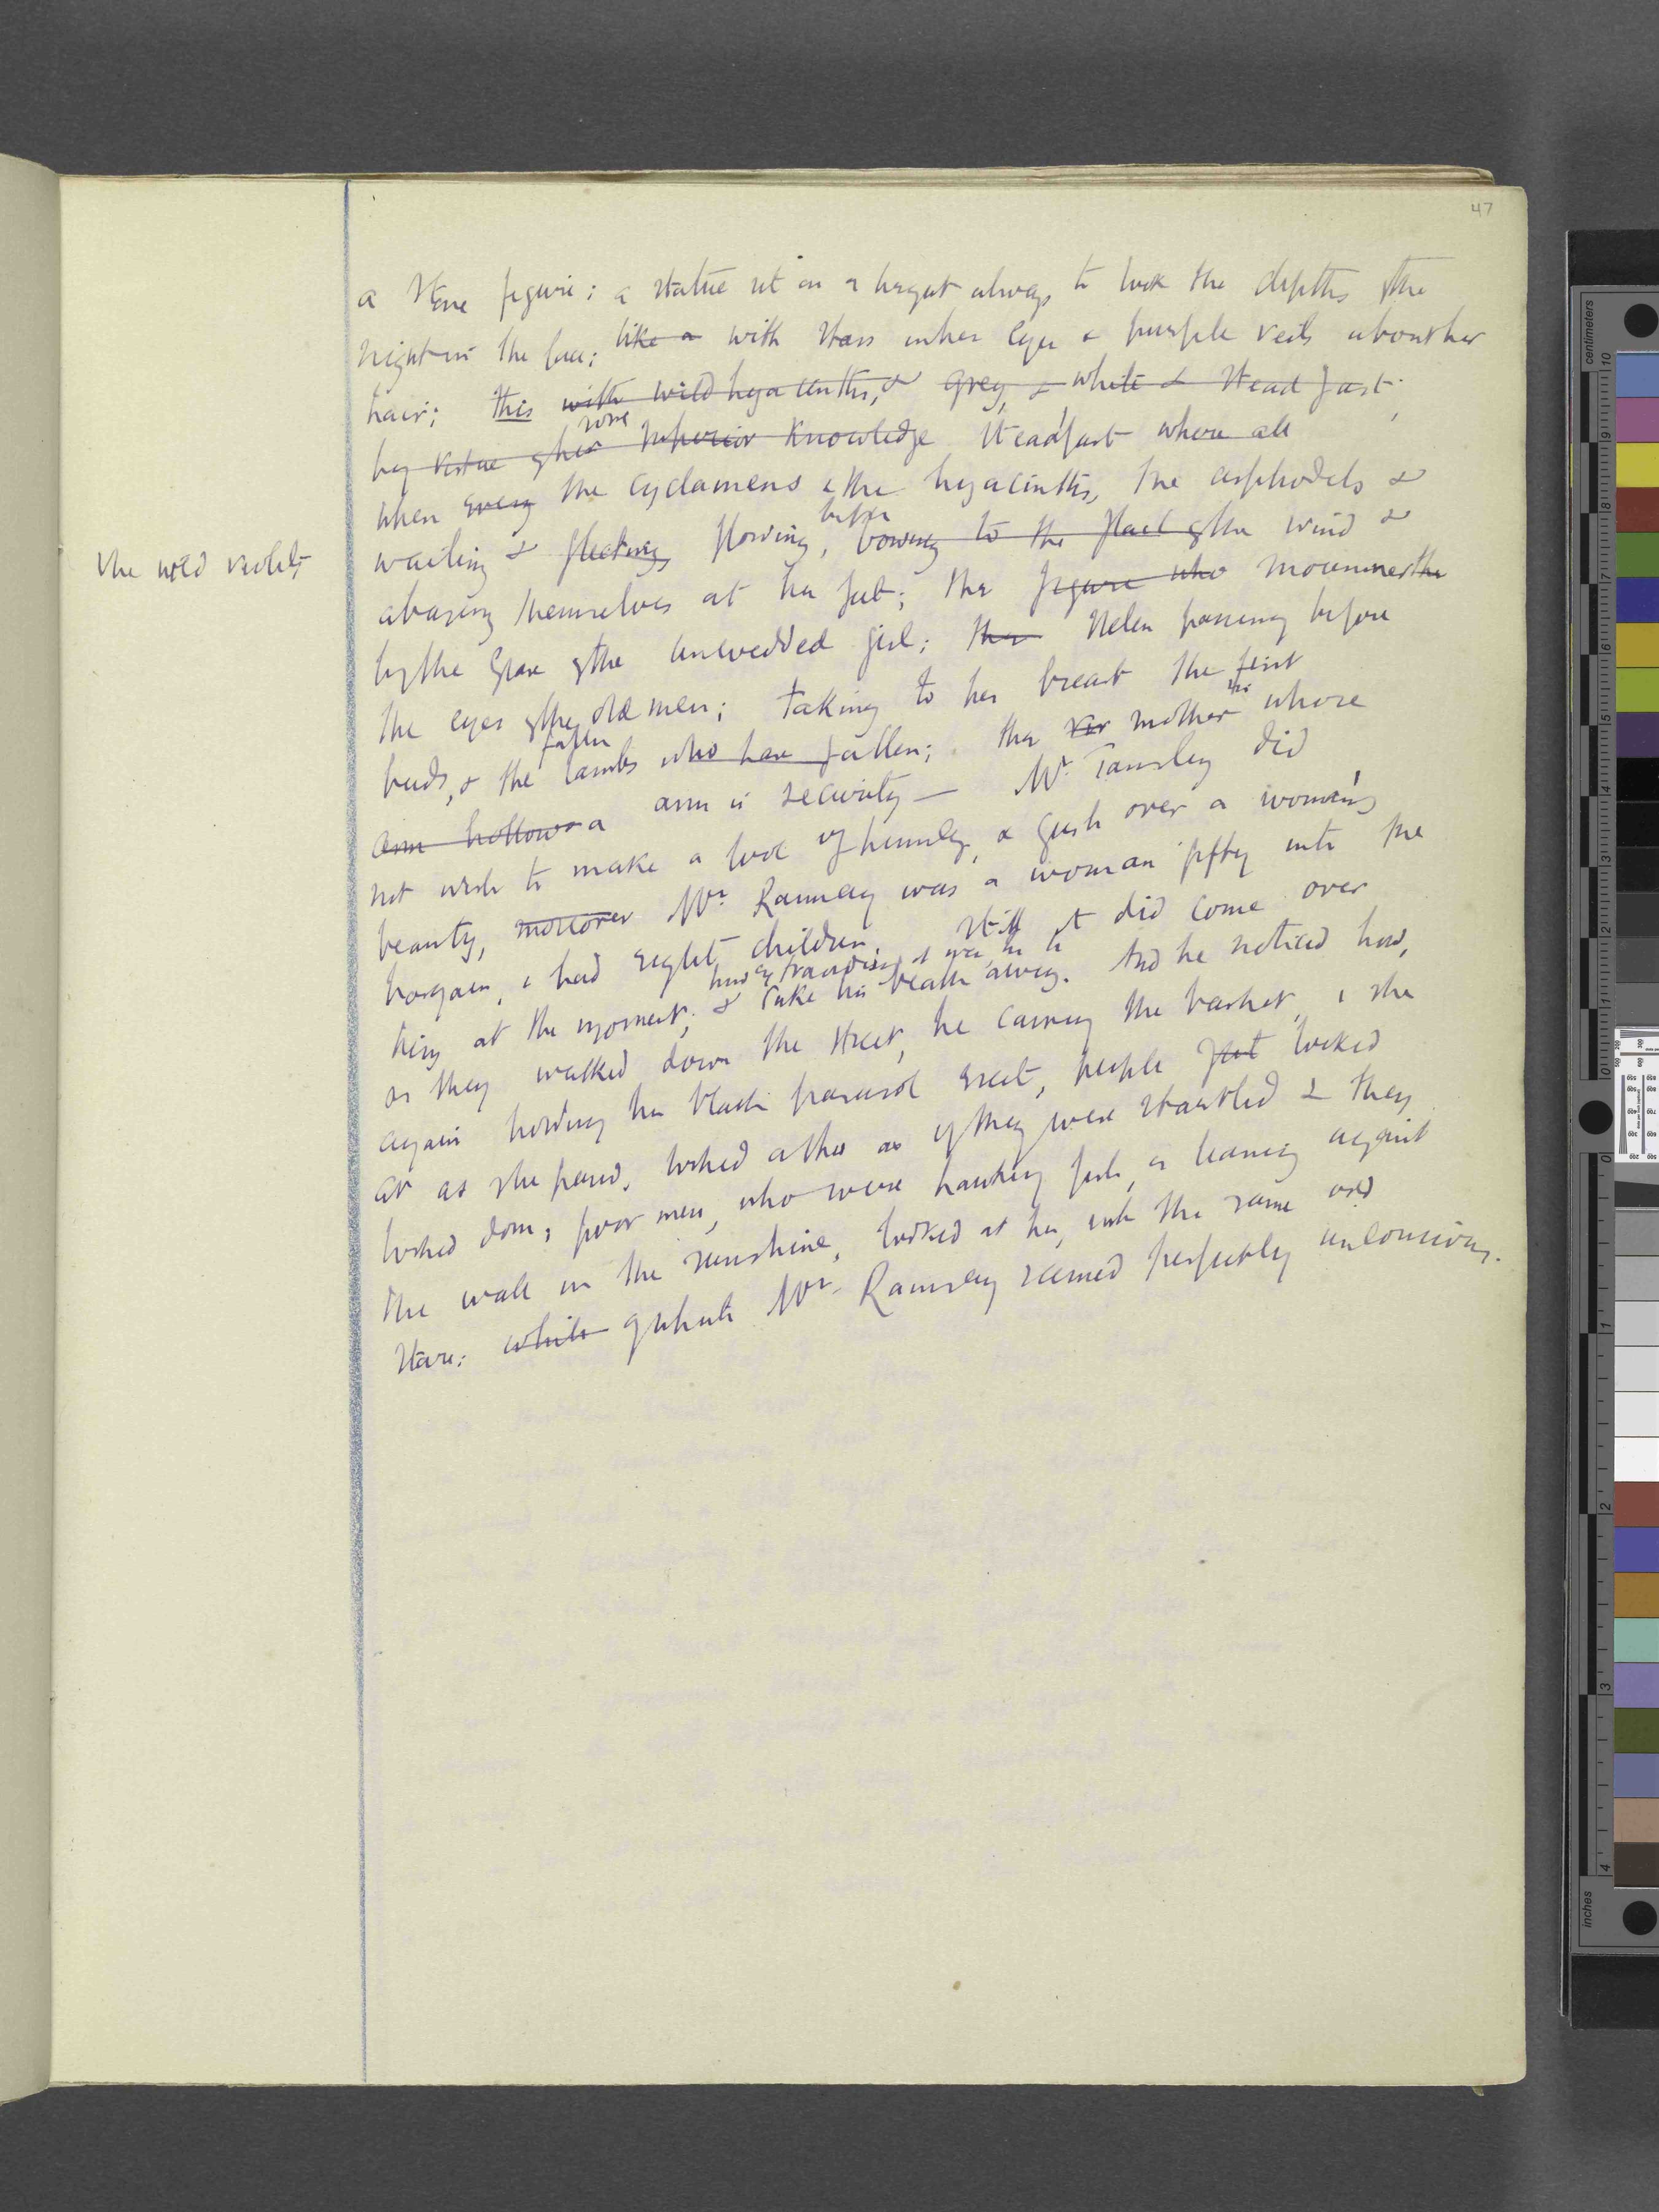 47
a stone figure; a statue set on a height always to look the depths of the
night in the face; like a with stars in her eyes & purple veils about her
hair; this with wild hyacinths, & grey, & white & steadfast;
some
by virtue of her superior knowledge steadfast where all
when every the cyclamens & the hyacinths, the asphodels &
before
the wild violets
waiting & flowing, bowing to the flail of the wind &
abasing themselves at her feet; the figure who mourner the
by the grave of the unwedded girl; the Helen passing before
the eyes of the old men; taking to her breast the first
fallen
buds, & the lambs who have fallen; the mother whose
arm hollows a arm is security — Mr. Tansley did
not wish to make a fool of himself, & gush over a woman's
beauty, moreover Mrs. Ramsay was a woman fifty into the
bargain, & had eight children. Still it did come over
him at the moment; & take his breath away. And he noticed how,
as they walked down the street, he carrying the basket, & she
again holding her black parasol erect, people just looked
at as she passed, looked at her as if they were startled & they
looked down; poor men, who were hawking fish, or leaning against
the wall in the sunshine, looked at her, with the same odd
stare; while of which Mrs. Ramsay seemed perfectly unconscious.